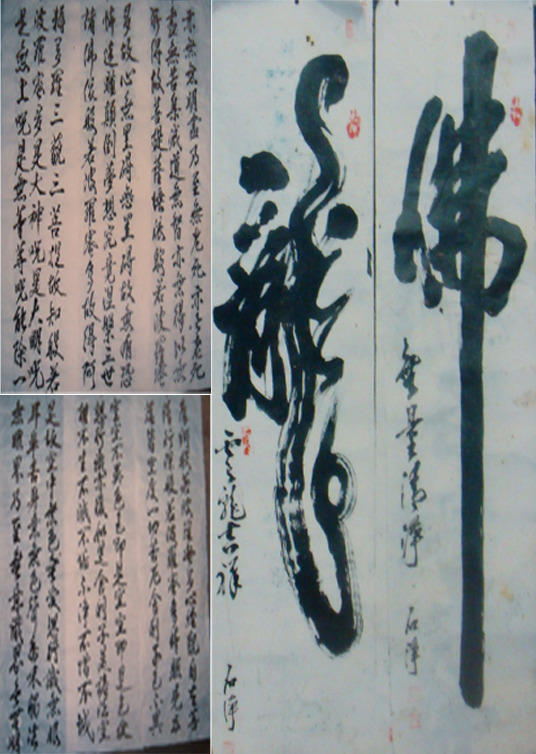 佛
無量清淨
石淨
龍
雲龍吉祥
石淨
亦無無明盡乃至無老死亦無老死
盡無苦集滅道無智亦無得以無
所得故菩提薩埵依般若波羅蜜
多故心無罣礙無罣礙故無有恐
怖遠離顛倒夢想究竟涅槃三世
諸佛依般若波羅蜜多故得阿
耨多羅三藐三菩提故知般若
波羅蜜多是大神咒是大明咒
是無上咒是無等等咒能除一
摩訶般若波羅蜜多心經觀自在菩
薩行深般若波羅蜜多時照見五
蘊皆空度一切苦厄舍利子色不異
空空不異色色即是空空即是色受
想行識亦復如是舍利子是諸法空
相不生不滅不垢不淨不增不減
是故空中無色無受想行識無眼
耳鼻舌身意無色聲香味觸法
無眼界乃至無意識界無無明